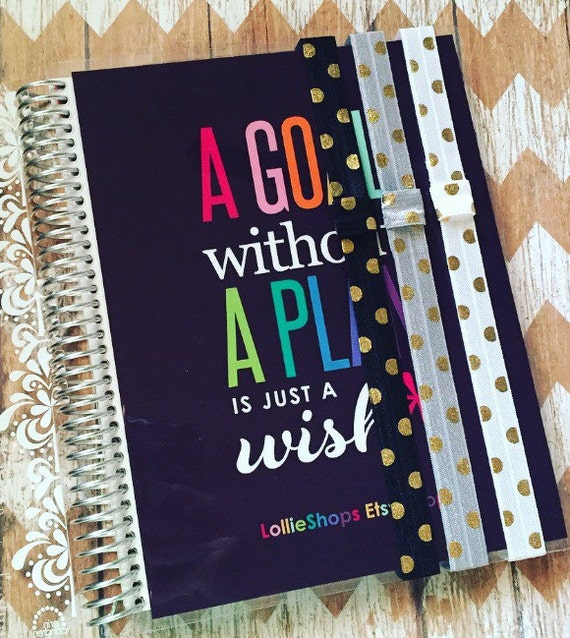 A GOAL
without
A PLAN
IS JUST A
wish
LollieShops Etsy.com